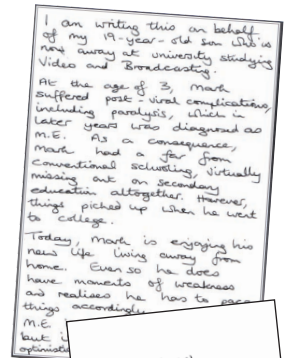 I am writing this on behalf
of my 19-year-old son who is
now away at university studying
Video and Broadcasting.
At the age of 3, Mark
suffered post-viral complications,
including paralysis, which in
later years was diagnosed as
M.E. As a consequence,
Mark had a far from
conventional schooling, virtually
missing out on secondary
education altogether. However,
things picked up when he went
to college.
Today, Mark is enjoying his
new life living away from
home. Even so he does
have moments of weakness
and realises he has to pace
things accordingly
M.E.
but
optimistic